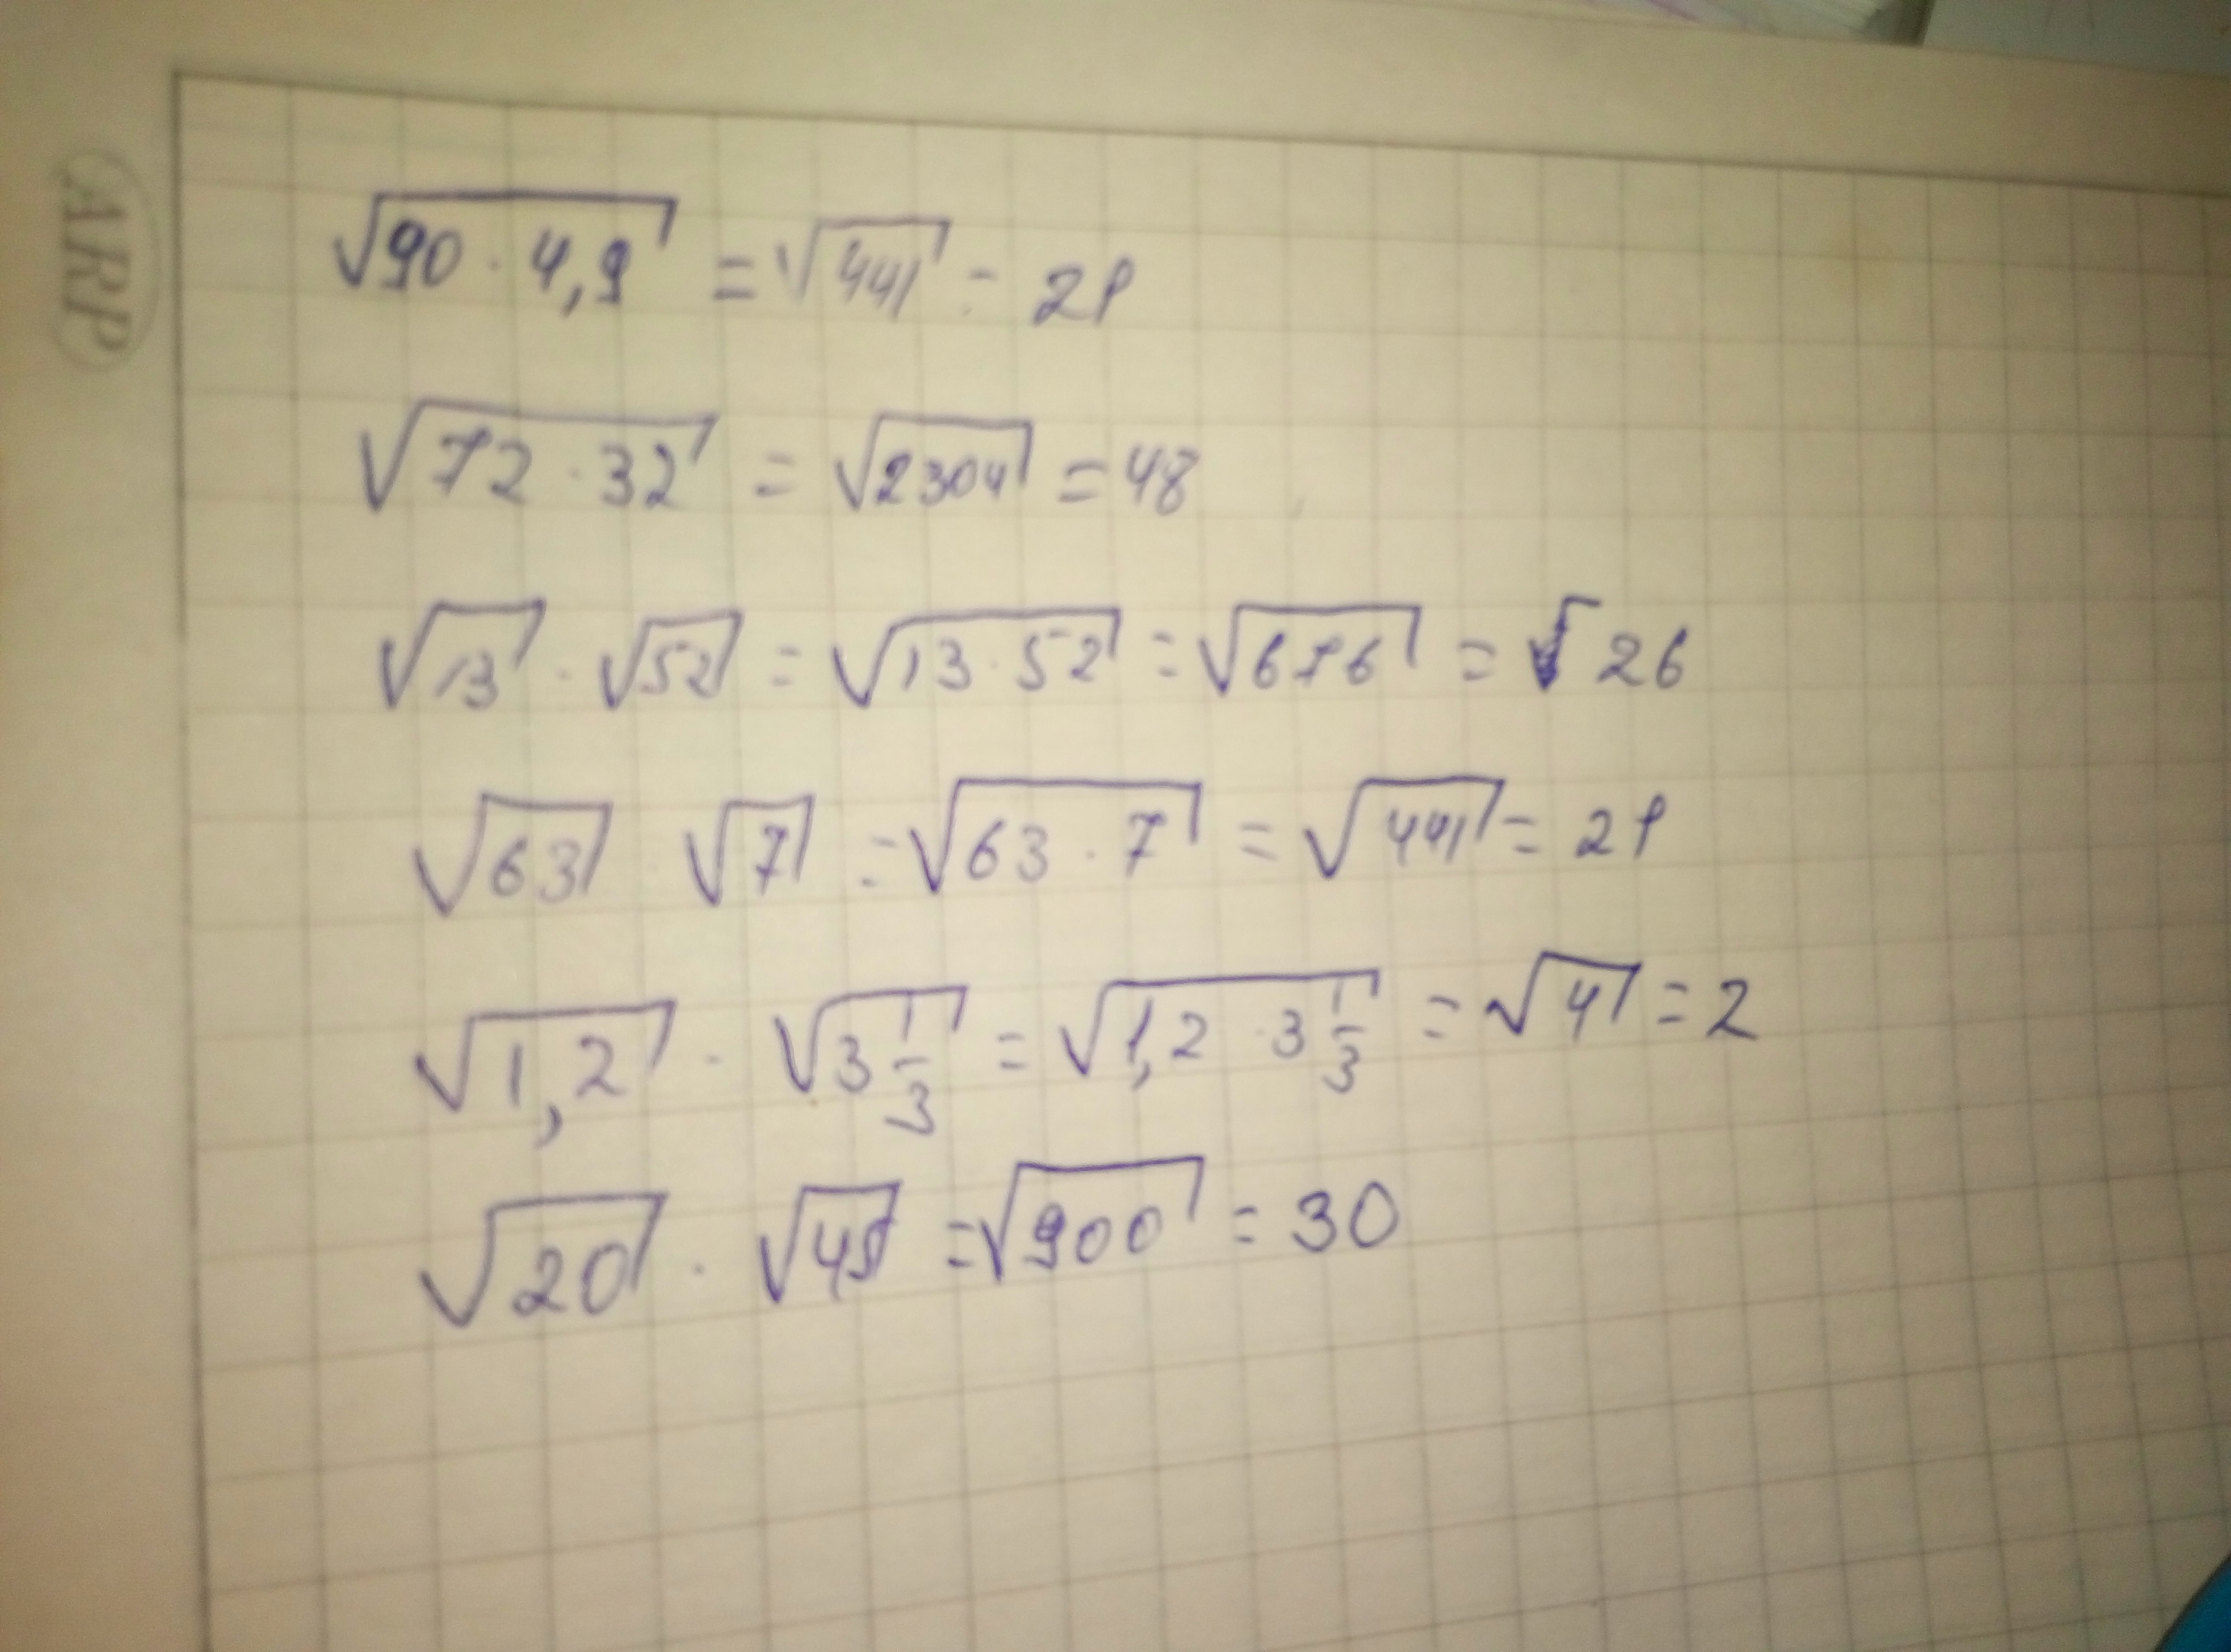 ARP
√90 · 4,9 = √441 = 21
√72 · 32 = √2304 = 48
√13 · √52 = √13 · 52 = √676 = √ 26
√63 · √7 = √63 · 7 = √441 = 21
√1,2 · √3 1/3 = √1,2 · 3 1/3 = √4 = 2
√20 · √45 = √900 = 30